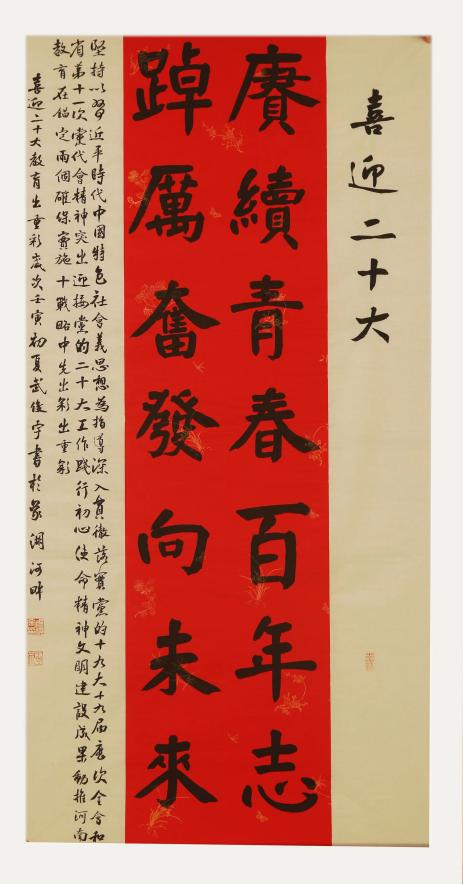 喜迎二十大
赓續青春百年志
踔厲奮發向未來
堅持以習近平時代中國特色社會義思想為指導深入貫徹落實黨的十九大十九届歷次全會和
省第十一次黨代會精神突出迎接黨的二十大工作踐行初心使命精神文明建設成果動推河南
教育在錨定兩個確保實施十戰略中先出彩出重彩
喜迎二十大教育出重彩歲次壬寅初夏武俊宇書於㶏澗河畔